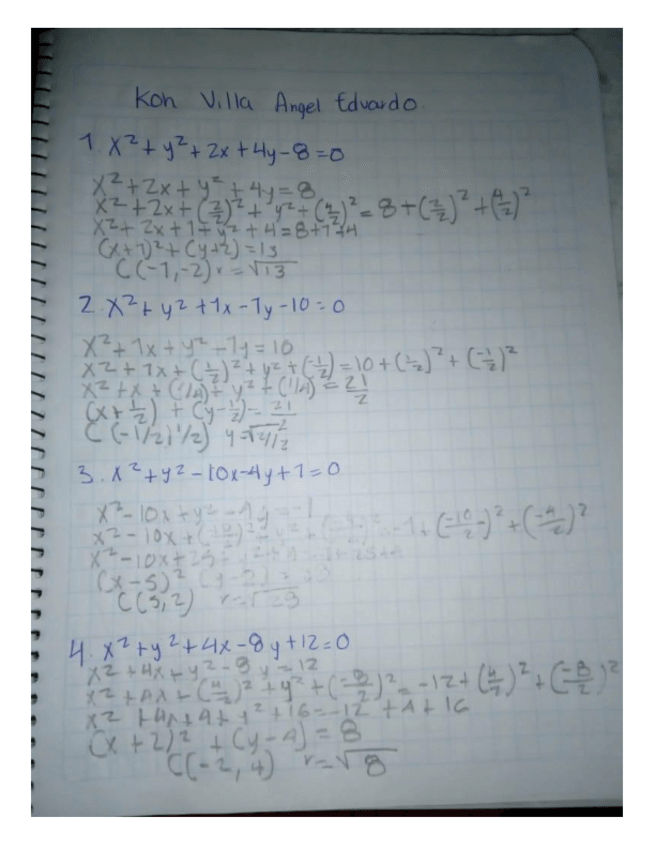 Koh Villa Angel Eduardo.
1. x²+y²+2x+4y-8=0
x²+2x+y²+4y=8
x²+2x+(2/2)²+y²+(4/2)²=8+(2/2)²+(4/2)²
x²+2x+1+y²+4=8+1+4
(x+1)²+(y+2)=13
C(-1,-2) r=√13
2. x²+y²+1x-1y-10=0
x²+1x+y²-1y=10
x²+1x+(1/2)²+y²+(-1/2)=10+(1/2)²+(-1/2)²
x²+x+(1/4)+y²+(1/4)=21/2
(x+1/2)+(y-1/2)=21/2
C(-1/2,1/2) r=√21/2
3. x²+y²-10x-4y+1=0
x²-10x+y²-4y=-1
x²-10x+(-10/2)²+y²+(-4/2)²=-1+(-10/2)²+(-4/2)²
x²-10x+25+y²+4
(x-5)² (y-2)
C(5,2) r=√28
4. x²+y²+4x-8y+12=0
x²+4x+y²-8y=12
x²+4x+(4/2)²+y²+(-8/2)²=-12+(4/2)²+(-8/2)²
x²+4x+4+y²+16=-12+4+16
(x+2)²+(y-4)=8
C(-2,4) r=√8